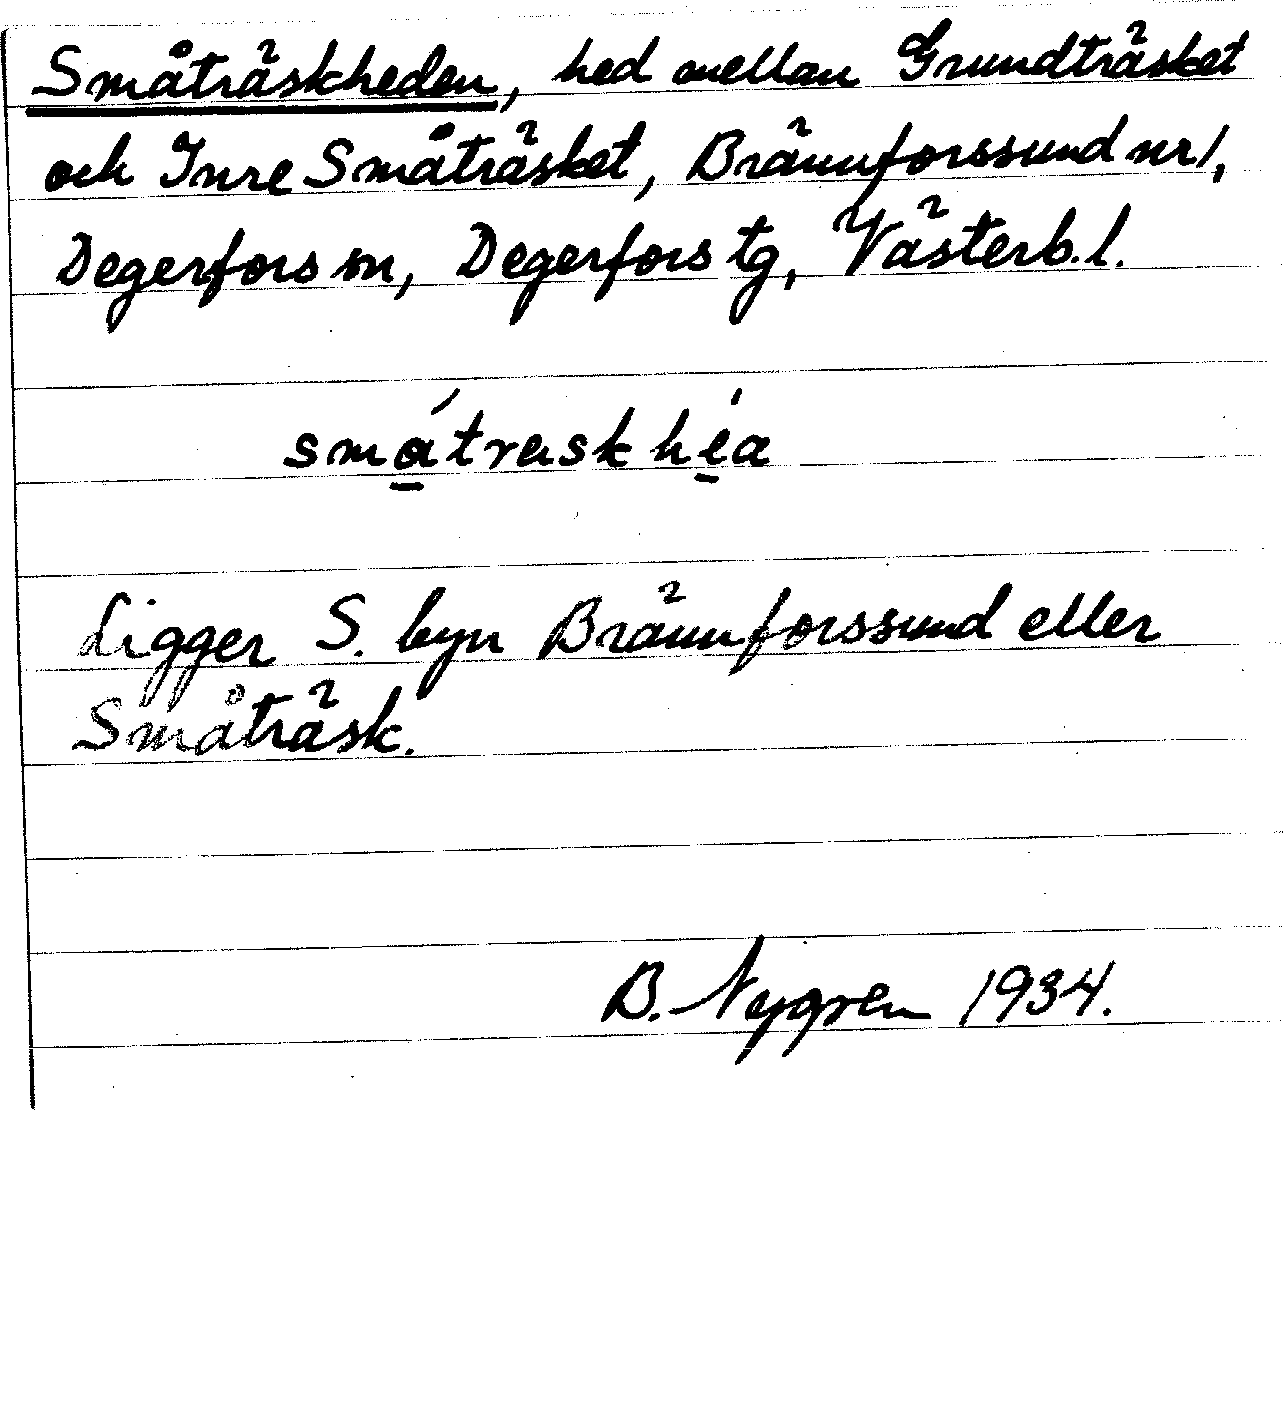 Småträskheden, hed mellan Grundträsket
och Inre Småträsket, Brännforssund nr 1,
Degerfors sn, Degerfors tg, Västerb. l.
Ligger S. byn Brännforssund eller
Småträsk.
B. Nygren 1934.